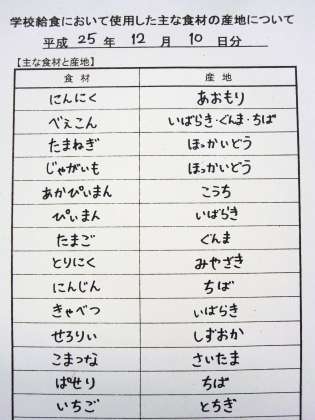 学校給食において使用した主な食材の産地について
平成 25 年 12 月 10 日分
【主な食材と産地】
食材 産地
にんにく あおもり
べぇこん いばらき・ぐんま・ちば
たまねぎ ほっかいどう
じゃがいも ほっかいどう
あかぴぃまん こうち
ぴぃまん いばらき
たまご ぐんま
とりにく みやざき
にんじん ちば
きゃべつ いばらき
せろりぃ しずおか
こまつな さいたま
ぱせり ちば
いちご とちぎ